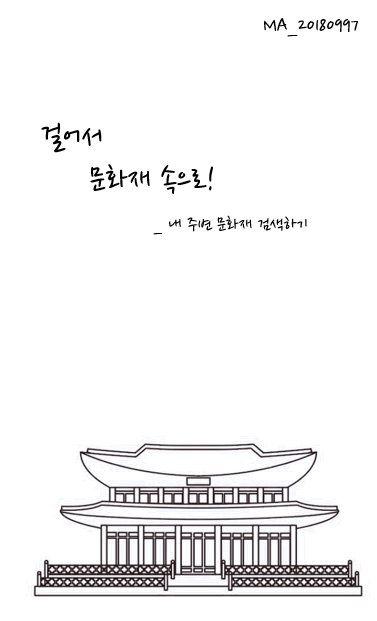 MA_20180997
걸어서
문화재 속으로!
_ 내 주변 문화재 검색하기